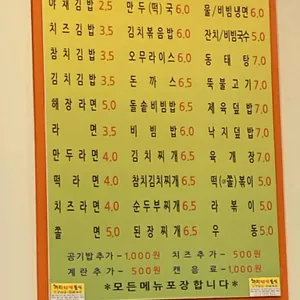 야채김밥 2,5 만두(떡)국 6,0 물/비빔냉면 6,0
치즈김밥 3,5 김치볶음밥 6,0 잔치/비빔국수 5,0
참치김밥 3,5 오무라이스 6,0 동태탕 7,0
해장라면 5,0 돈까스 6,5 뚝불고기 7,0
라면 3,5 돌솥비빔밥 6,5 제육덮밥 7,0
만두라면 4,0 비빔밥 6,0 낙지덮밥 7,0
떡라면 4,0 김치찌개 6,5 육개장 7,0
치즈라면 4,0 참치김치찌개 6,5 떡(쫄)볶이 5,0
쫄면 5,0 순두부찌개 6,5 라볶이 5,0
된장찌개 6,5 우동 5,0
공기밥추가 - 1,000원 치즈추가 - 500원
계란추가 - 500원 캔음료 - 1,000원
*모든메뉴포장합니다*